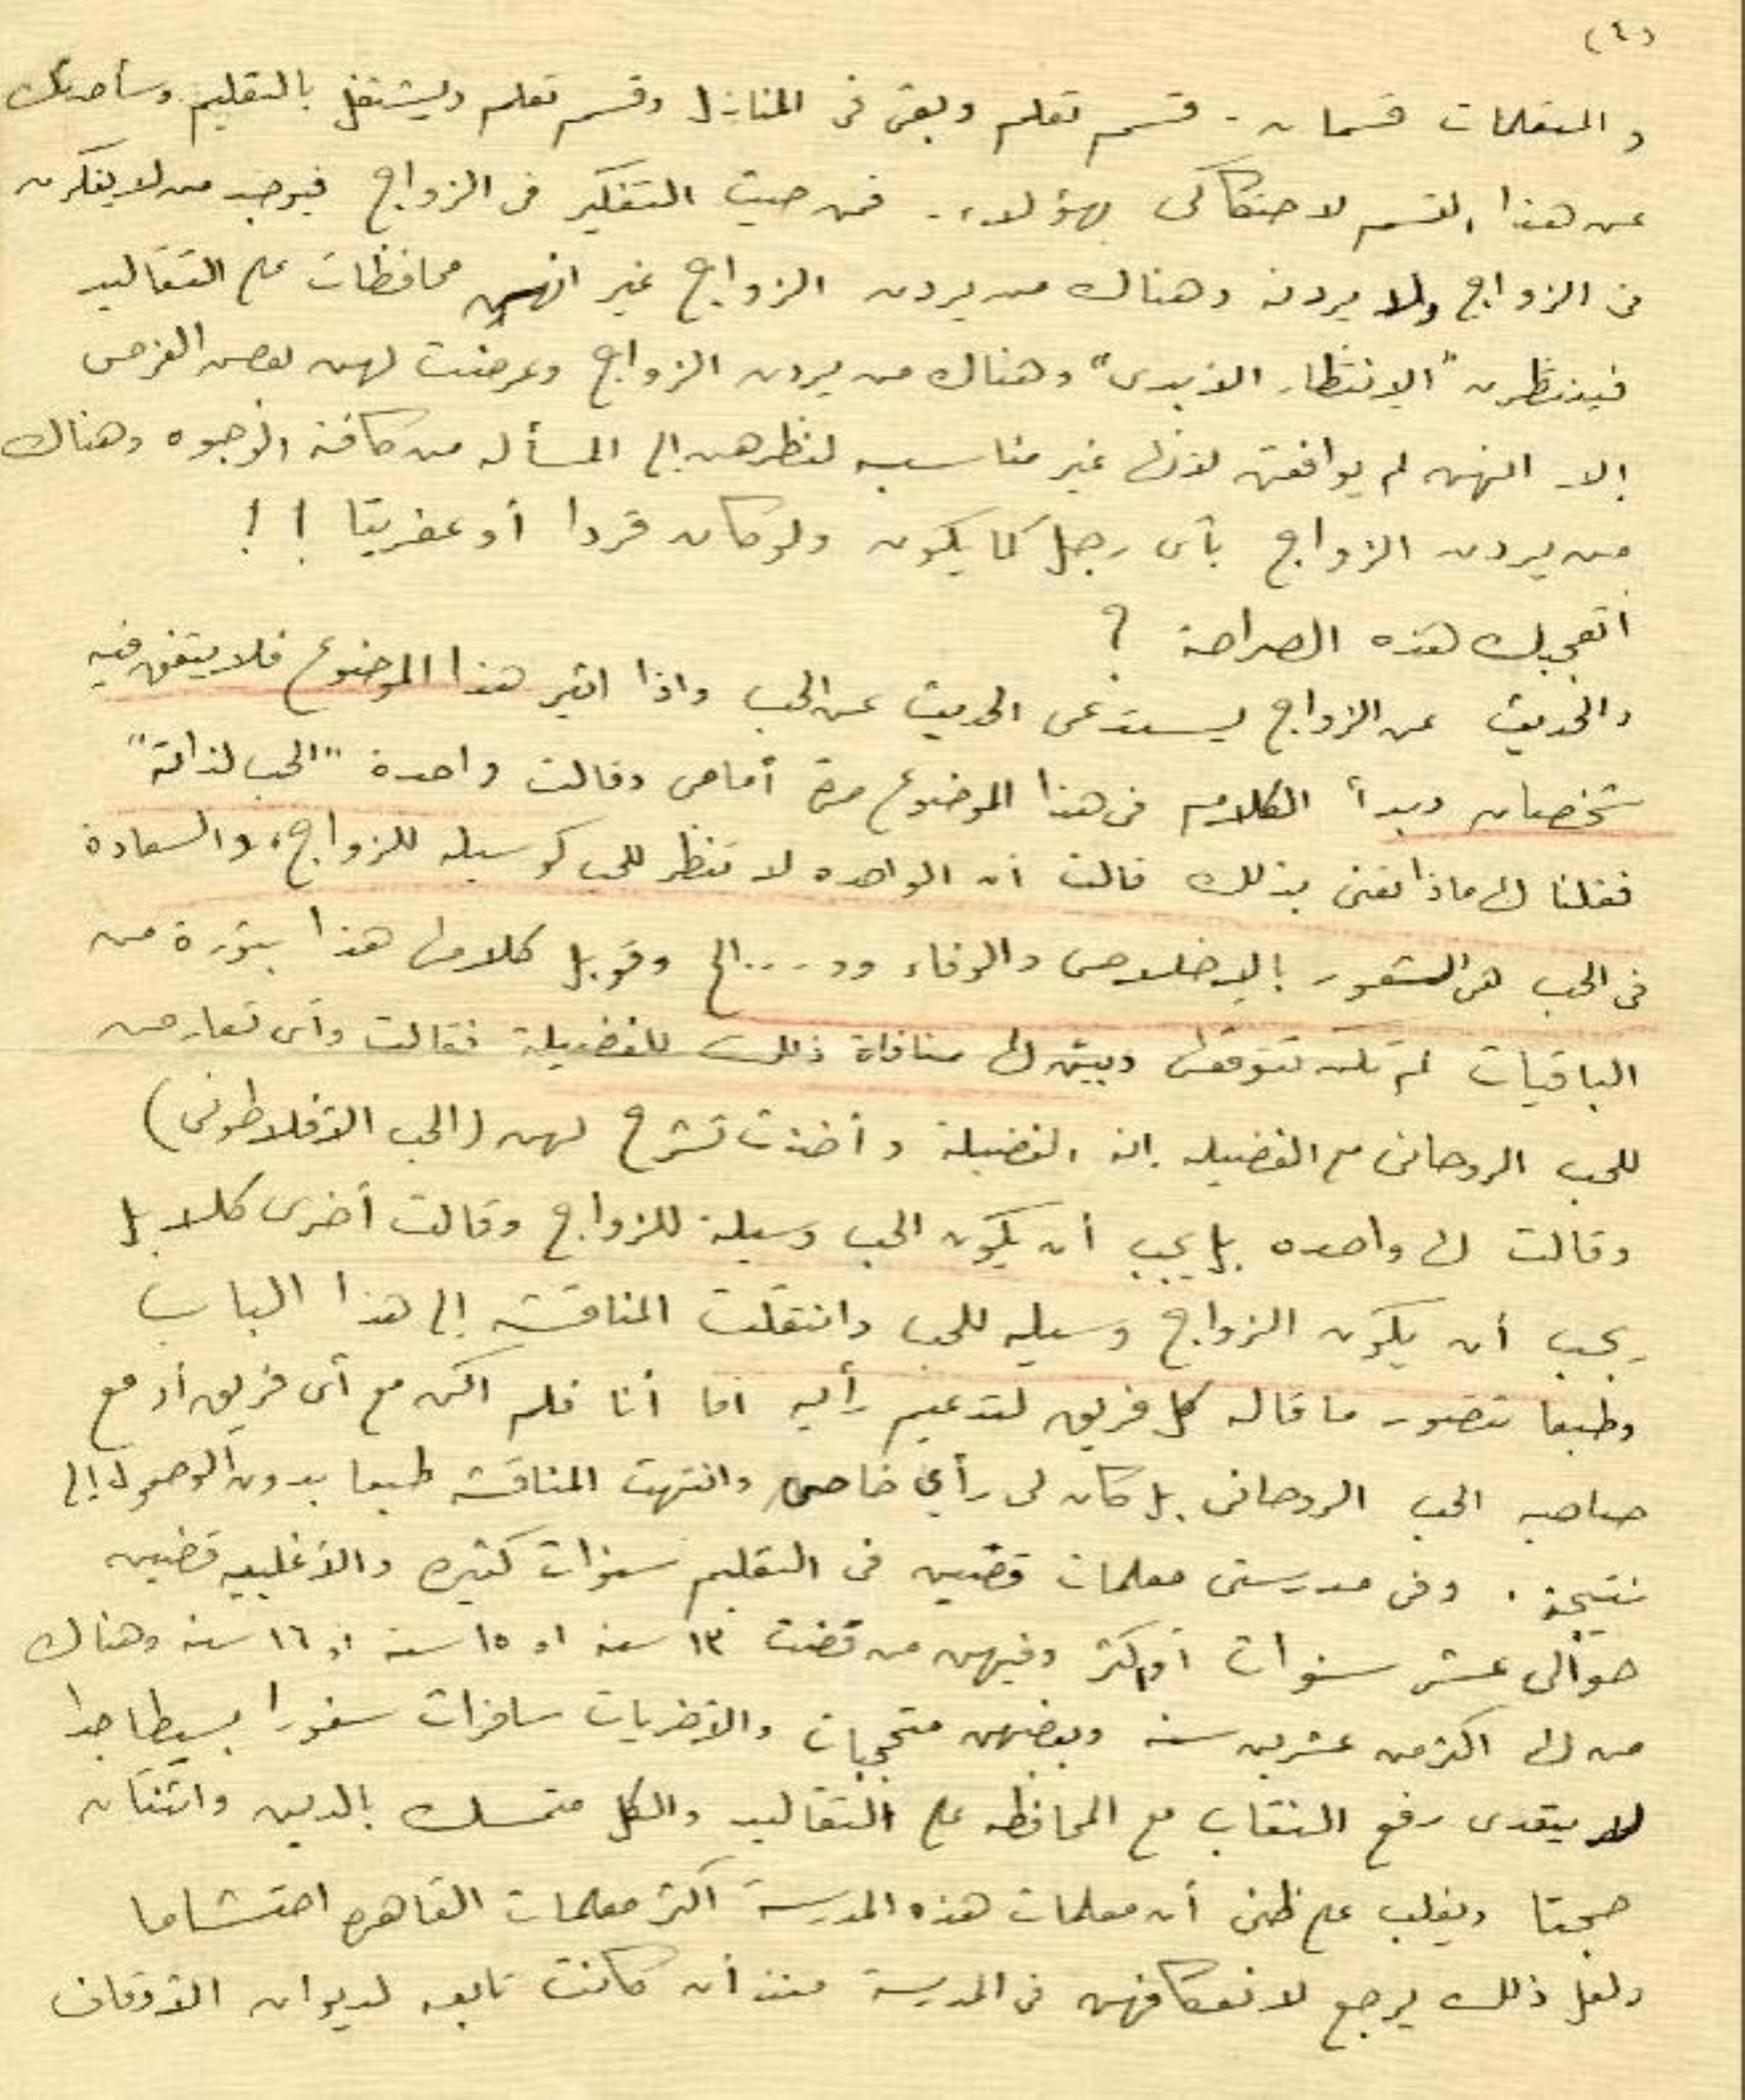 (٤)
والمتعلمات قسمان - قسم تعلم وبقى فى المنازل وقسم تعلم ويشتغل بالتعليم وسأحدثك
عن هذا القسم لاحتكاكى بهؤلاء. فمن حيث التفكير فى الزواج فيوجد من لا يفكرن
فى الزواج ولا يردنه وهناك من يردن الزواج غير انهن محافظات على التقاليد
فينتظرن "الإنتظار الأبدى" وهناك من يردن الزواج وعرضت لهن بعض الفرص
إلا انهن لم يوافقن لأنها غير مناسبه لنظرهن إلى المسألة من كافة الوجوه وهناك
من يردن الزواج بأى رجل كما يكون ولو كان قردا أو عفريتا !!
اتعجبك هذه الصراحة ؟
والحديث عن الزواج يستدعى الحديث عن الحب واذا اثير هذا الموضوع فلا يتفق فيه
شخصان وبدأ الكلام فى هذا الموضوع مرة أمامى وقالت واحدة "الحب لذاته"
فقلنا لها ماذا تعنى بذلك قالت ان الواحده لا تنظر للحب كوسيله للزواج، والسعادة
فى الحب هى الشعور بالإخلاص والوفاء وو....الخ وقوبل كلامها هذا بثورة من
الباقيات لم تكن تتوقعها وبين لها منافاة ذلك للفضيلة فقالت وأى تعارض
للحب الروحانى مع الفضيله إنه الفضيلة وأخذت تشرح لهن (الحب الأفلاطونى)
وقالت لها واحده بل يجب أن يكون الحب وسيلة للزواج وقالت أخرى كلا بل
يجب أن يكون الزواج وسيله للحب وانتقلت المناقشة إلى هذا الباب
وطبعا تتصور ما قاله كل فريق لتدعيم رأيه اما أنا فلم اكن مع أى فريق أو مع
صاحبه الحب الروحانى بل كان لى رأى خاص وانتهت المناقشة طبعا بدون الوصول إلى
نتيجة. وفى مدرستى معلمات قضين فى التعليم سنوات كثيره والأغلبيه قضين
حوالى عشر سنوات أو اكثر وفيهن من قضت ١٣ سنه او ١٥ سنه او ١٦ سنه وهناك
من لها اكثر من عشرين سنه وبعضهن متحجبات والأخريات سافرات سفورا بسيطا جدا
لا يتعدى رفع النقاب مع المحافظه على التقاليد والكل متمسك بالدين واثنتان
حجتا ويغلب على ظنى أن معلمات هذه المدرسة اكثر معلمات القاهره احتشاما
ولعل ذلك يرجع لانعكافهن فى المدرسة منذ أن كانت تابعه لديوان الأوقاف